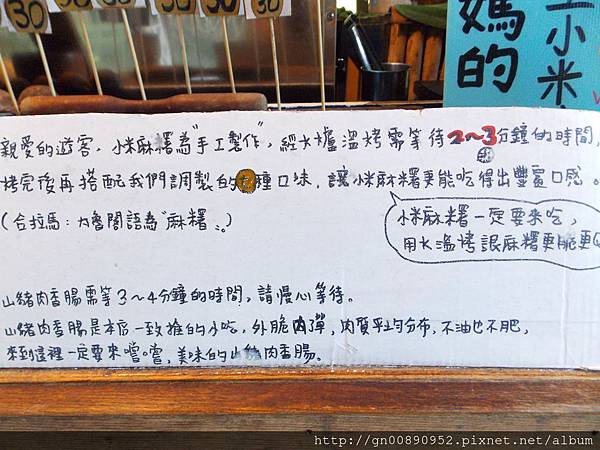 30 30 30 30
媽的
小米
親愛的遊客, 小米麻糬為"手工製作", 經火爐溫烤需等待2~3分鐘的時間,
烤完後再搭配我們調製的 種口味, 讓小米麻糬更能吃得出豐富口感。
(合拉馬:太魯閣語為"麻糬"。)
小米麻糬一定要來吃,
用火溫烤讓麻糬更脆更Q
山豬肉香腸需等3~4分鐘的時間, 請慢心等待。
山豬肉香腸是本店一致推的小吃, 外脆內彈, 肉質平均分布, 不油也不肥,
來到這裡一定要來嚐嚐, 美味的山豬肉香腸。
http://gn00890952.pixnet.net/album